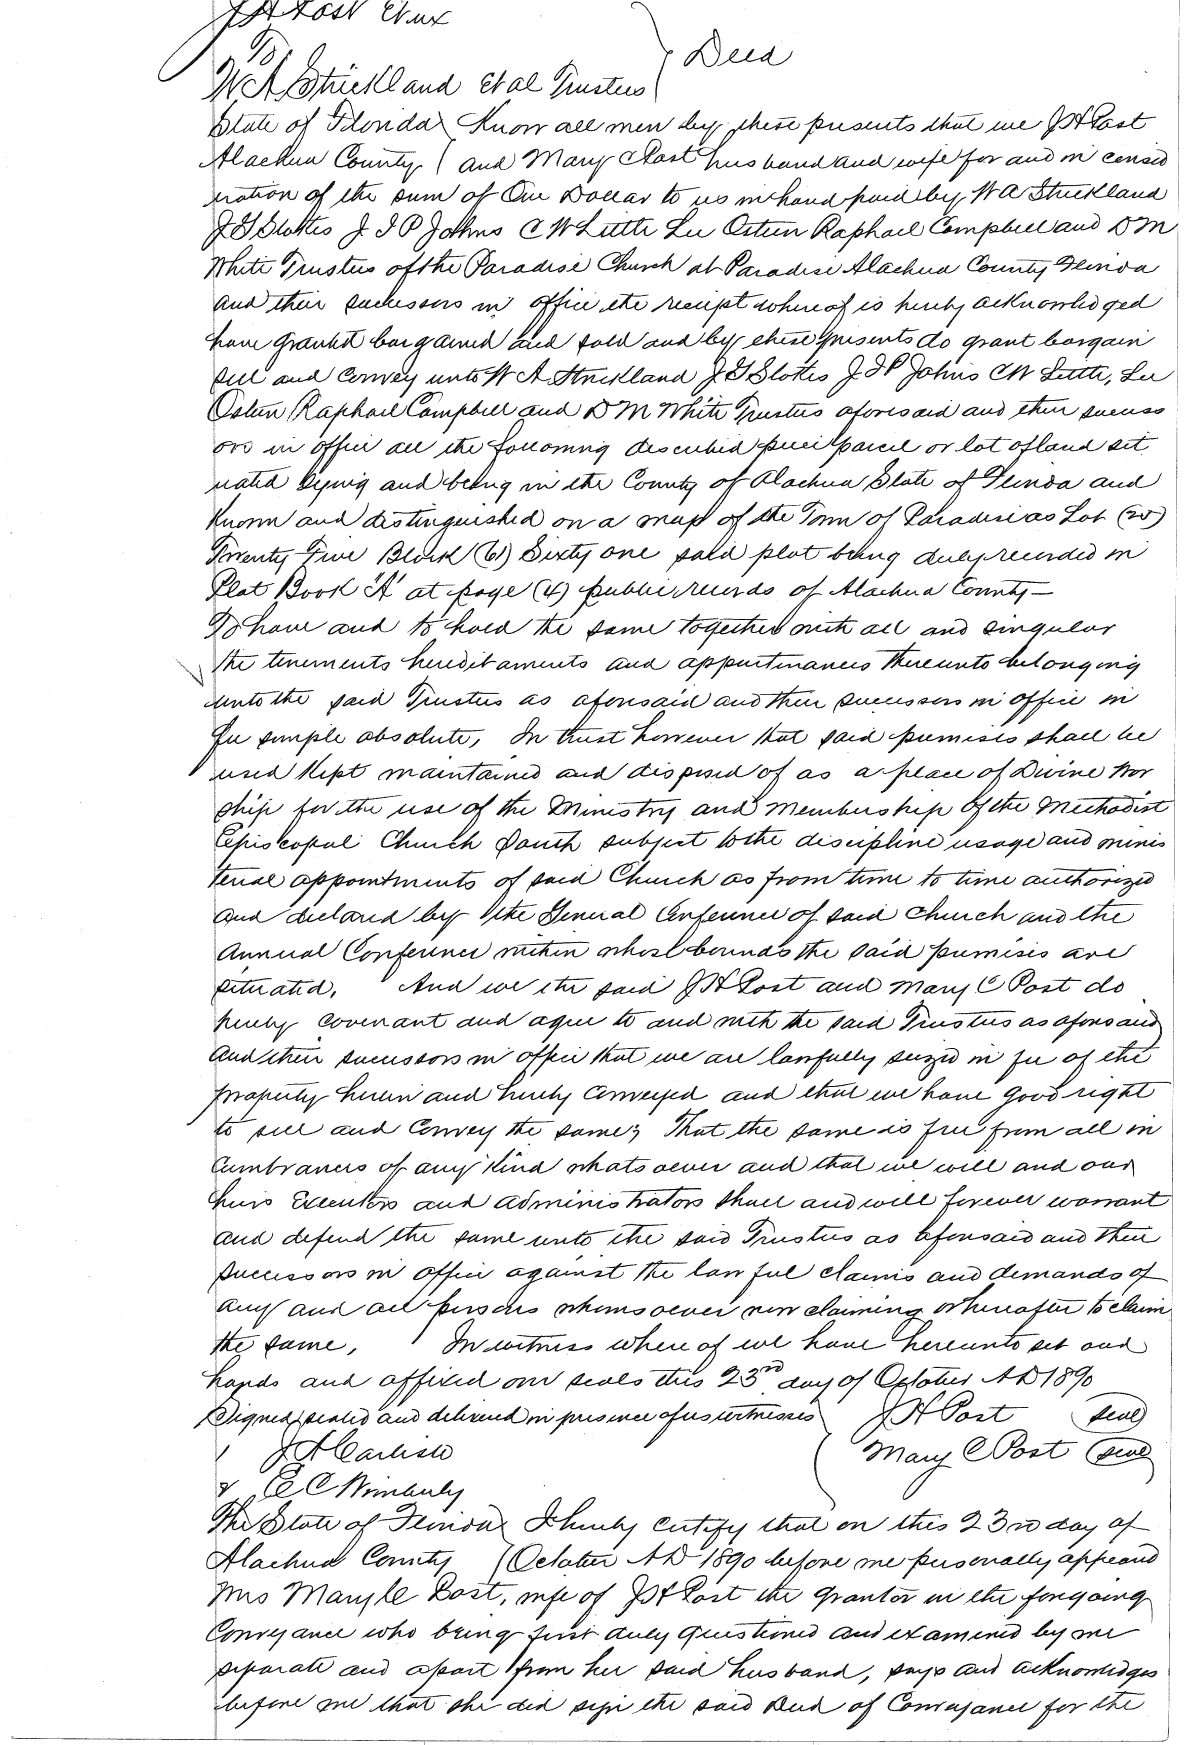 J H Post Et ux
To
Deed
W A Strickland et al Trustees
State of Florida Know all men by these presents that we J H Post
Alachua County and Mary C Post husband and wife for and in consid
eration of the sum of One Dollar to us in hand paid by W A Strickland
J G Stokes J J P Johns C W Little Lee Osteen Raphael Campbell and D M
White Trustees of the Paradise Church at Paradise Alachua County Florida
and their successors in office the receipt whereof is hereby acknowledged
have granted bargained and sold and by these presents do grant bargain
sell and convey unto W A Strickland J G Stokes J J P Johns C W Little, Lee
Osteen Raphael Campbell and D M White Trustees aforesaid and their success
ors in office all the following described piece parcel or lot of land sit
uated lying and being in the County of Alachua State of Florida and
known and distinguished on a map of the Town of Paradise as Lot (25)
Twenty Five Block (61) Sixty one said plat being duly recorded in
Plat Book "A" at page (4) public records of Alachua County —
To have and to hold the same together with all and singular
the tenements hereditaments and appurtenances thereunto belonging
unto the said Trustees as aforesaid and their successors in office in
fee simple absolute, In trust however that said premises shall be
used kept maintained and disposed of as a place of Divine Wor
ship for the use of the Ministry and Membership of the Methodist
Episcopal Church South subject to the discipline usage and minis
terial appointments of said Church as from time to time authorized
and declared by the General Conference of said Church and the
Annual Conference within whose bounds the said premises are
situated. And we the said J H Post and Mary C Post do
hereby covenant and agree to and with the said Trustees as aforesaid
and their successors in office that we are lawfully seized in fee of the
property herein and hereby conveyed and that we have good right
to sell and convey the same; That the same is free from all in
cumbrances of any kind whatsoever and that we will and our
heirs Executors and administrators shall and will forever warrant
and defend the same unto the said Trustees as aforesaid and their
successors in office against the lawful claims and demands of
any and all persons whomsoever now claiming or hereafter to claim
the same. In witness where of we have hereunto set our
hands and affixed our seals this 23rd day of October AD 1890
Signed sealed and delivered in presence of us witnesses J H Post (seal)
J A Carlisle Mary C Post (seal)
& C C Wimberly
The State of Florida I hereby certify that on this 23rd day of
Alachua County October AD 1890 before me personally appeared
Mrs Mary C Post, wife of J H Post the grantor in the foregoing
Conveyance who being first duly questioned and examined by me
separate and apart from her said husband, says and acknowledges
before me that she did sign the said Deed of Conveyance for the